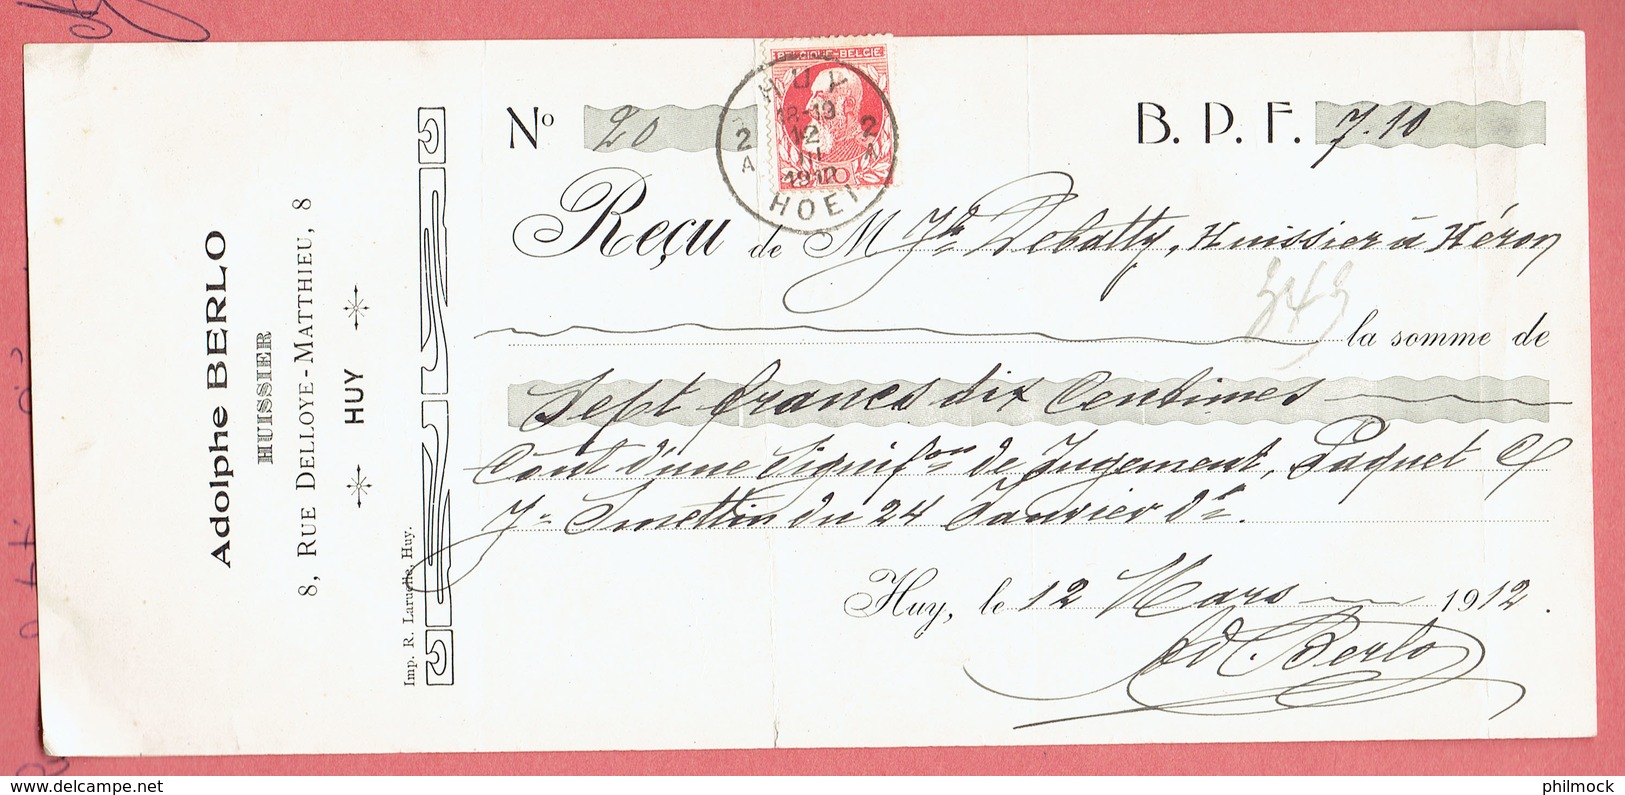 Adolphe BERLO
HUISSIER
8, RUE DELLOYE-MATTHIEU, 8
HUY
Imp. R. Laruelle, Huy.
BELGIQUE-BELGIE
HUY
18-19
2 12 2
A III A
1912 10
HOEI
No 20 B. P. F. 7.10
Reçu de M Jh Dobatty, Huissier à Héron
343
la somme de
Sept francs dix Centimes
Cout d'une Signifon de Jugement, Paquet C/
Smettin du 24 Janvier dr.
Huy, le 12 Mars 1912.
Ad. Berlo
philmock